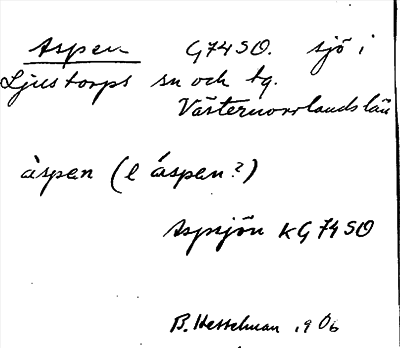 Aspen G74SO. sjö i
Ljustorps sn och tg.
Västernorrlands län
àspen (l áspen?)
Aspsjön KG74SO
B. Hesselman 1906